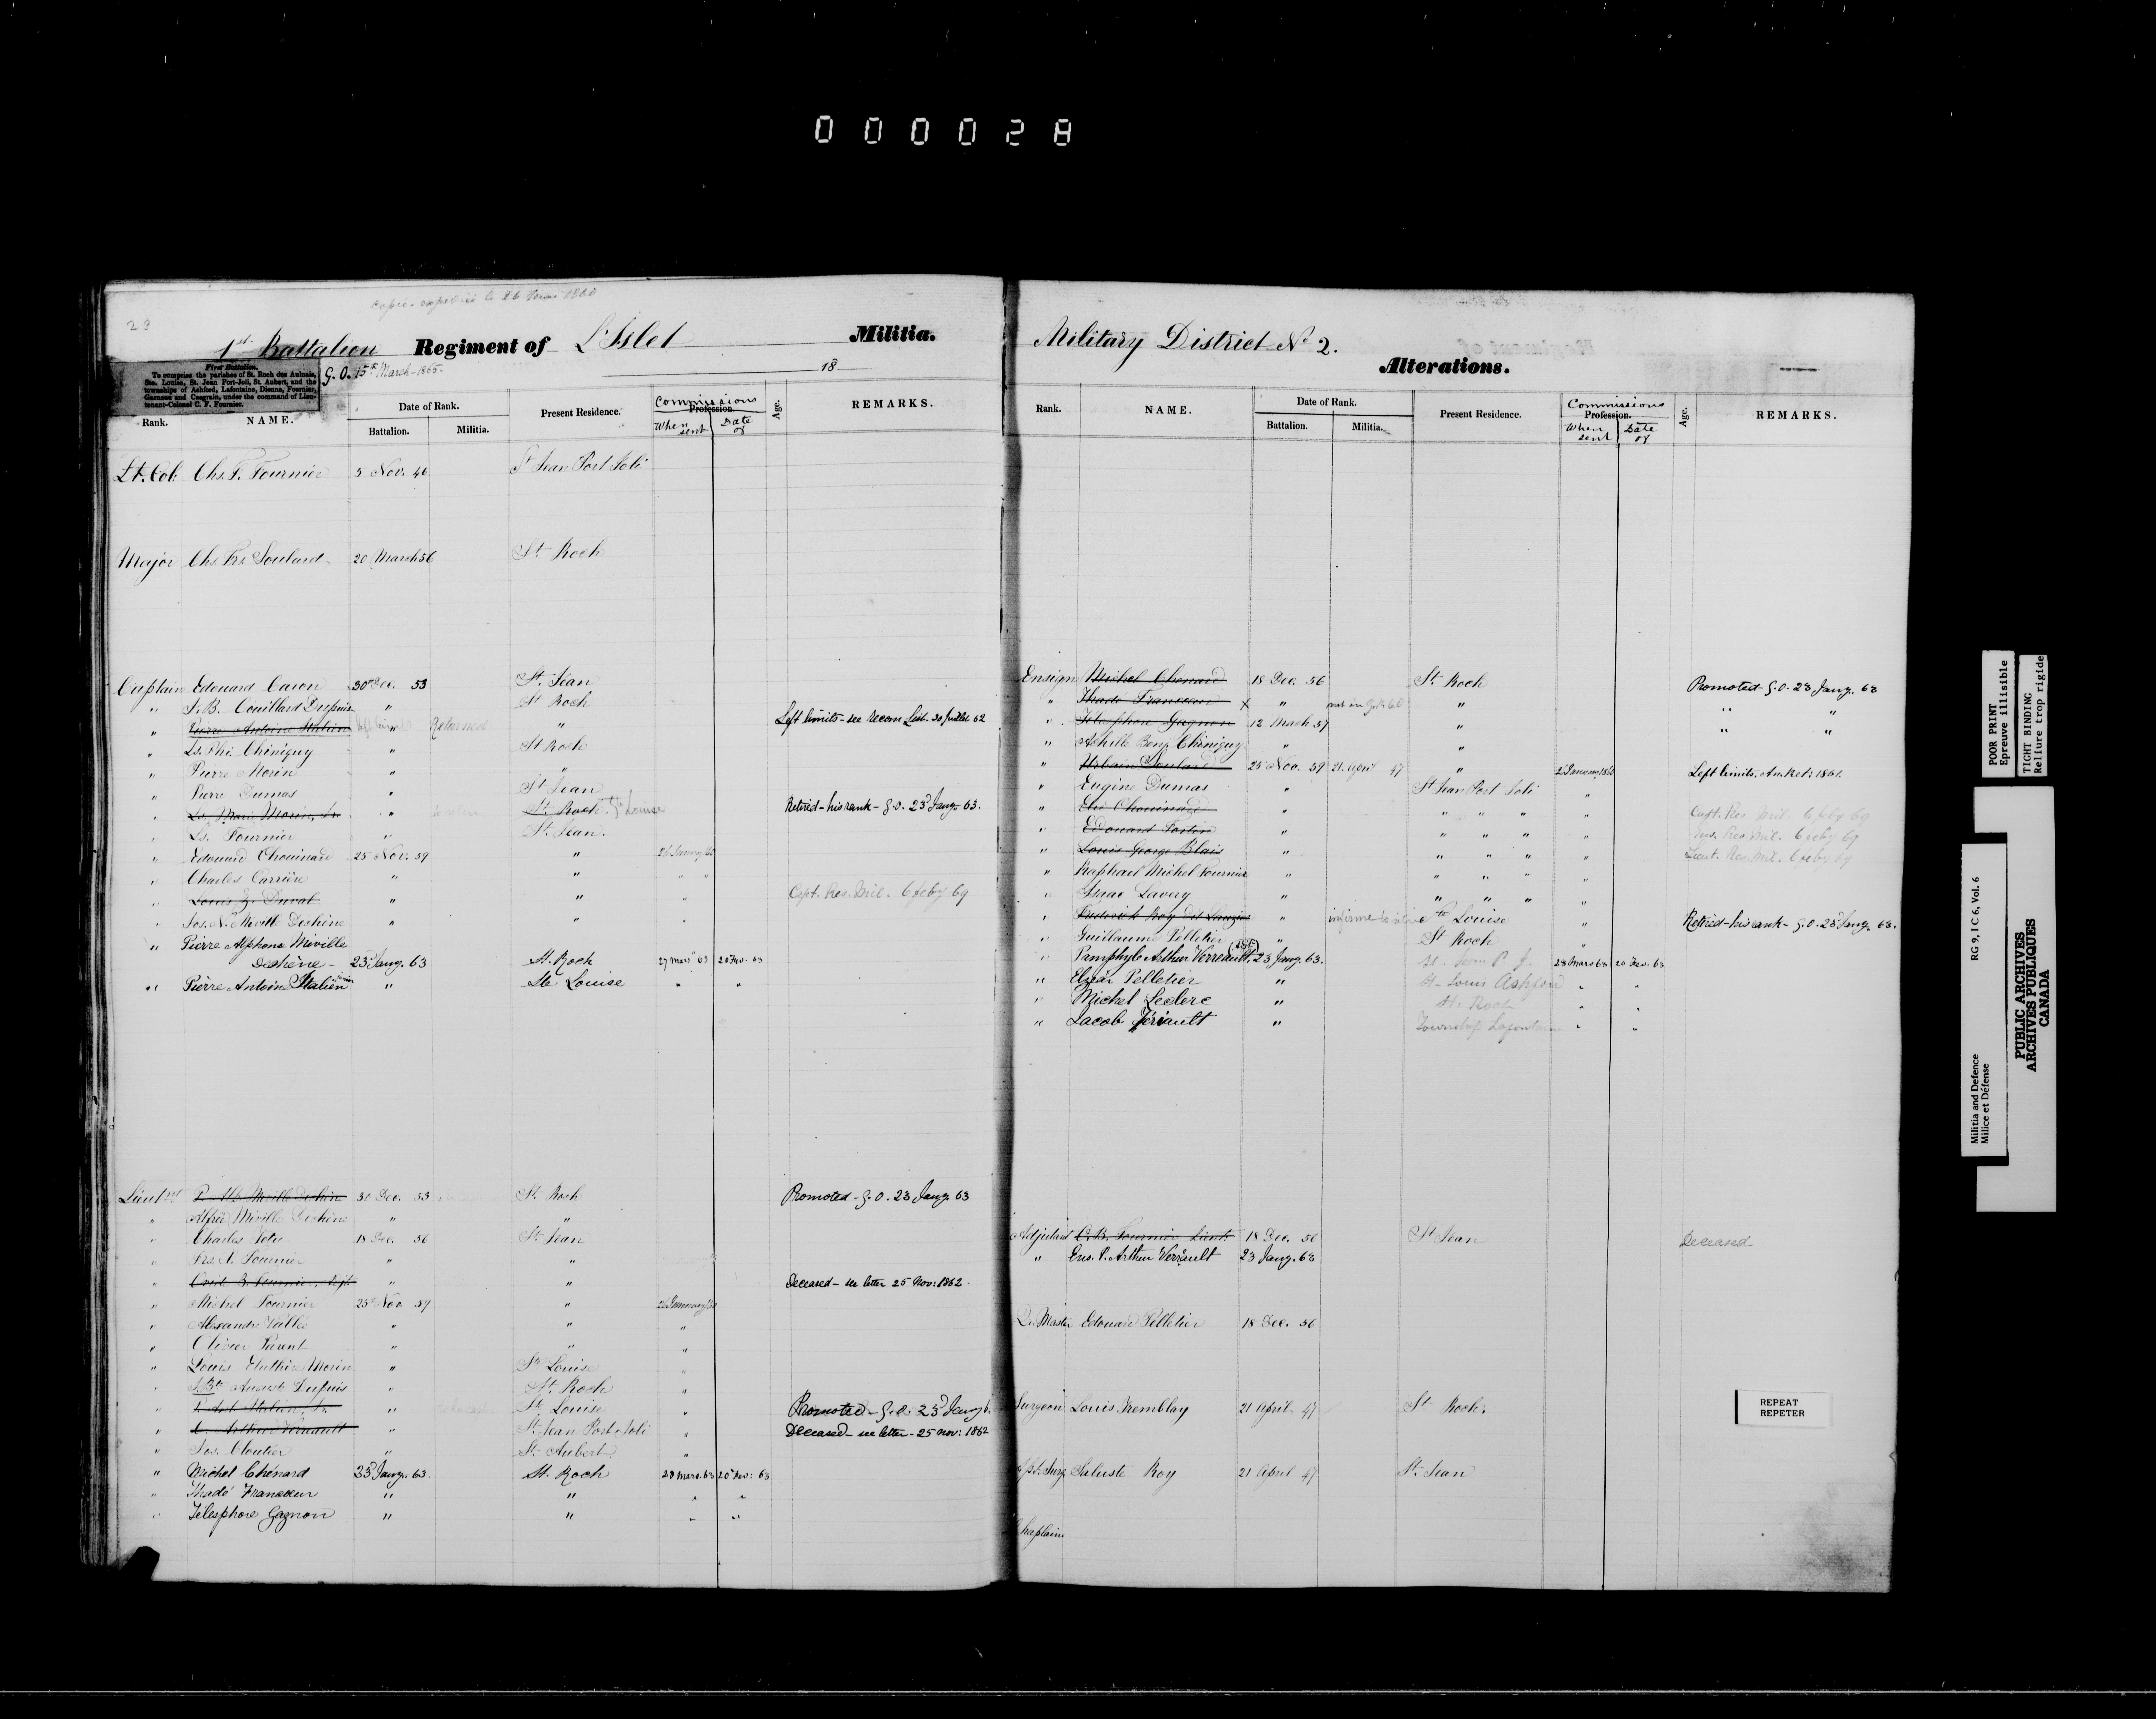 000028
Copie expédiée le 26 mai 1860
23
1st Battalion Regiment of L'Islet Militia.
18
First Battalion.
To comprise the parishes of St. Roch des Aulnais,
Ste. Louise, St. Jean Port-Joli, St. Aubert, and the
townships of Ashford, Lafontaine, Dionne, Fournier,
Garneau and Casgrain, under the command of Lieu-
tenant-Colonel C. F. Fournier.
G. O. 15th March-1865-
Rank. NAME. Date of Rank. Battalion. Militia. Present Residence. Commissions Profession. When sent Date of Age. REMARKS.
Lt. Col: Chs. F. Fournier 5 Nov. 46 St Jean Port Joli
Major Chs. Frs. Soulard 20 March 56 St Roch
Captain Edouard Caron 30 Dec. 53 St. Jean
" J. B. Couillard Dupuis " St Roch
" Pierre Antoine Italien left limits " Returned " Left limits - see Recom List. 30 juillet 62
" Ls. Phi. Chiniquy " St Roch
" Pierre Morin " "
" Pierre Dumas " St Jean
" Ls. Marie Morin, Sr. " St. Roch Ste Louise Retired - his rank - G.O. 23d Jany. 63.
" Ls. Fournier " St. Jean.
" Edouard Chouinard 25 Nov. 59 " 26 January 60
" Charles Carrière " " " "
" Louis Z. Duval " " " Capt. Res. Mil. 6 feby 69
" Jos. N. Miville Deshêne " " "
" Pierre Alphonse Miville
Deshêne - 23d Jany. 63 St. Roch 27 mars 63 20 Fev. 63
" Pierre Antoine Italien " Ste Louise " "
Lieutnt P. Alp. Miville Deshêne 30 Dec. 53 St. Roch Promoted - G.O. 23 Jany. 63
" Alfred Miville Deshêne " "
" Charles Pelletier 18 Dec. 56 St Jean
" Frs. X. Fournier " "
" B. Fournier, Adjt. " " Deceased - see letter 25 Nov: 1862.
" Michel Fournier 25 Nov. 59 " 26 January 60
" Alexandre Vallée " " "
" Olivier Parent " " "
" Louis Eluthère Morin " Ste Louise "
" J. Bte Auguste Dupuis " St. Roch "
" P. Ant. Italien, Jr. " Ste Louise " Promoted - G.O. 23d Jany 6
" Arthur Verrault " St. Jean Port Joli " Deceased - see letter - 25 Nov: 1862
" Jos. Cloutier " St. Aubert "
" Michel Chénard 23d Jany. 63. St. Roch 28 mars. 63 20 Fev: 63
" Thadé Francoeur " " " "
" Télesphore Gagnon " " " "
Military District No 2.
Alterations.
Rank. NAME. Date of Rank. Battalion. Militia. Present Residence. Commissions Profession. When sent Date of Age. REMARKS.
Ensign Michel Chenard 18 Dec. 56 St. Roch Promoted - G.O. 23 Jany. 63
" Thadé Francoeur X " " " "
" Télesphore Gagnon 12 March 57 " " "
" Achille Benj. Chiniquy " "
" Urbain Soulard 25 Nov. 59 21 April 47 " 26 January 1860 Left limits. An. Ret: 1861.
" Eugène Dumas " St Jean Port Joli "
" Chouinard " " " " " Capt. Res. Mil. 6 feby 69
" Edouard Fortin " " " " " Ens. Res. Mil. 6 feby 69
" Louis George Blais " " " " " Lieut. Res. Mil. 6 feby 69
" Raphael Michel Fournier " " " " "
" Isaac Lavery " " " " "
" Frederick Roy " infirme Ste Louise " Retired - his rank - G.O. 23d Jany. 63.
" Guillaume Pelletier " St Roch "
" Pamphyle Arthur Verreault, 23 Jany. 63. St. Jean P. J. 28 mars 63 20 Fev. 63
" Elzéar Pelletier " St. Louis Ashford " "
" Michel Leclerc " St. Roch " "
" Jacob Tériault " Township Lafontaine " "
Adjutant C. B. Fournier Lieut. 18 Dec. 56 St Jean Deceased
" Ens. P. Arthur Verrault 23 Jany. 63
Qr. Master Edouard Pelletier 18 Dec. 56
Surgeon Louis Tremblay 21 April 47 St Roch.
Asst. Surg Saluste Roy 21 April 47 St. Jean
Chaplain
POOR PRINT
Epreuve illisible
TIGHT BINDING
Reliure trop rigide
Militia and Defence
Milice et Défense
RG 9, I C 6, Vol. 6
PUBLIC ARCHIVES
ARCHIVES PUBLIQUES
CANADA
REPEAT
REPETER